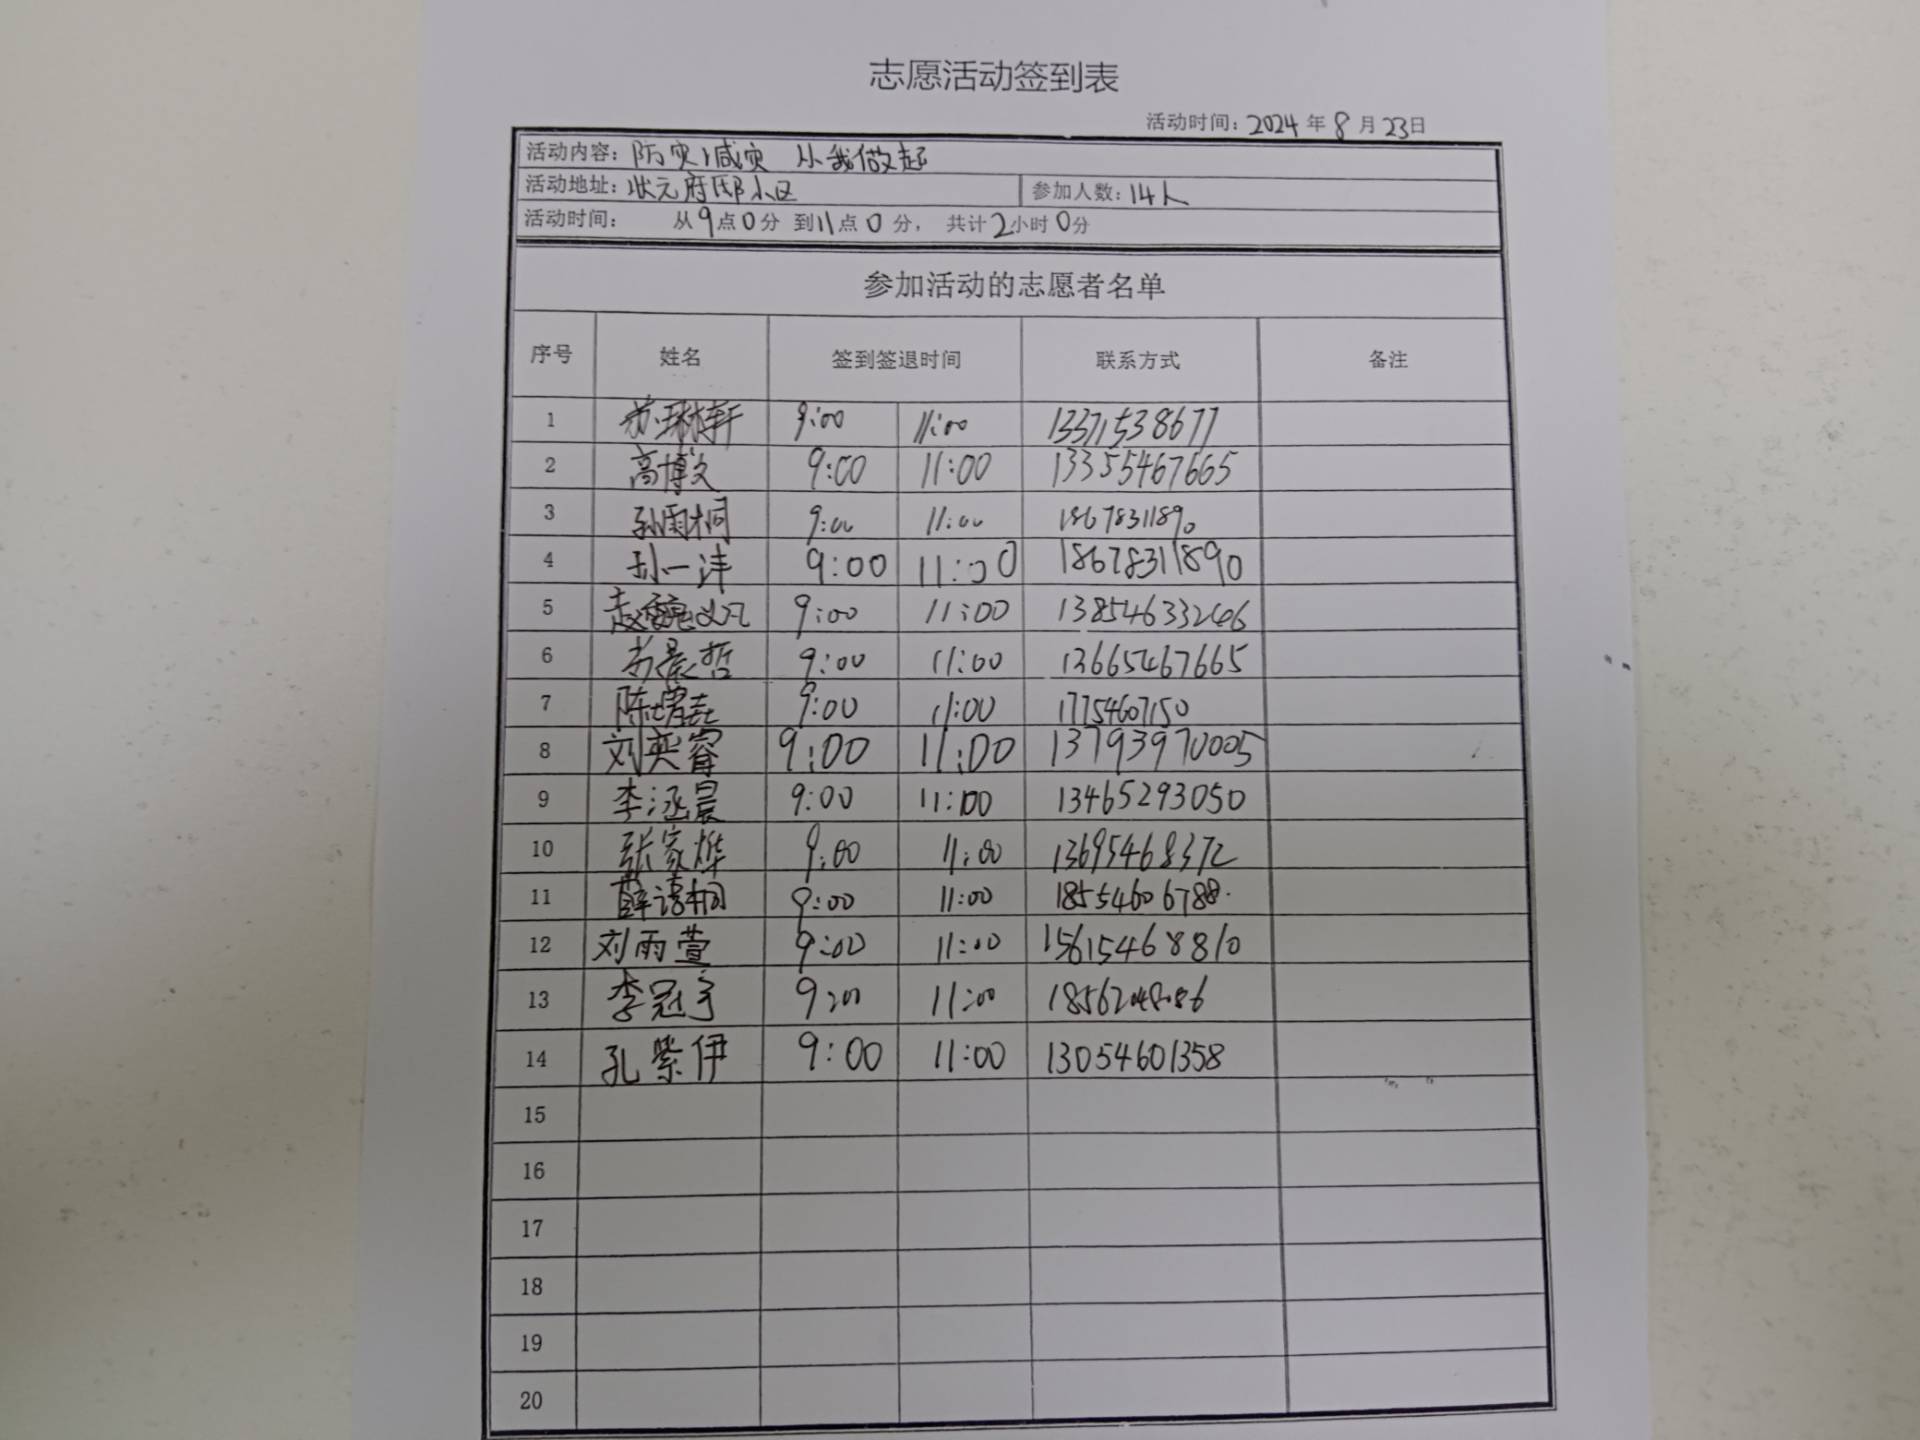 志愿活动签到表
活动时间：2024 年 8 月 23日
活动内容：防灾减灾 从我做起
活动地址：状元府邸小区 参加人数：14人
活动时间： 从 9 点 0 分 到 11 点 0 分， 共计 2 小时 0 分
参加活动的志愿者名单
序号 姓名 签到签退时间 联系方式 备注
1 苏琳轩 9:00 11:00 13371538677
2 高博文 9:00 11:00 13355467665
3 孙雨桐 9:00 11:00 18678311890
4 孙一沣 9:00 11:00 18678311890
5 9:00 11:00
6 晨哲 9:00 11:00 13665467665
7 陈增垚 9:00 11:00 17754607150
8 刘奕睿 9:00 11:00 13793970005
9 李涵晨 9:00 11:00 13465293050
10 张家烨 9:00 11:00 13695468372
11 薛谙桐 9:00 11:00 18554606788
12 刘雨萱 9:00 11:00 15615468810
13 李冠宇 9:00 11:00
14 孔紫伊 9:00 11:00 13054601358
15
16
17
18
19
20